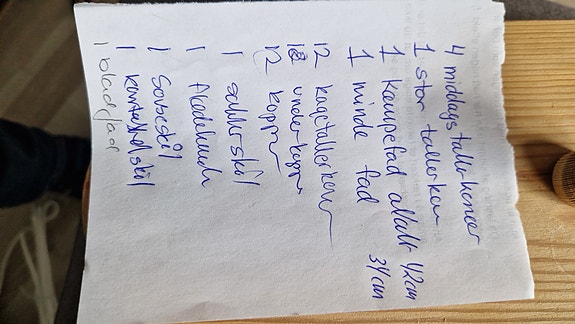 4 middagstallerkener
1 stor tallerken
1 kæmpefad 42cm
1 minde fad 34cm
12 kagetallerkener
12 underkopper
12 kopper
1 sukkerskål
1 flødekande
1 Sovseskål
1 kartoffelskål
1